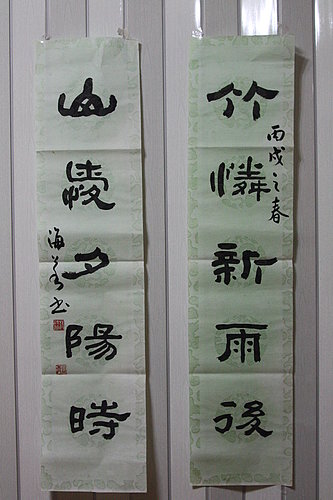 竹憐新雨後
丙戌之春
山愛夕陽時
海书